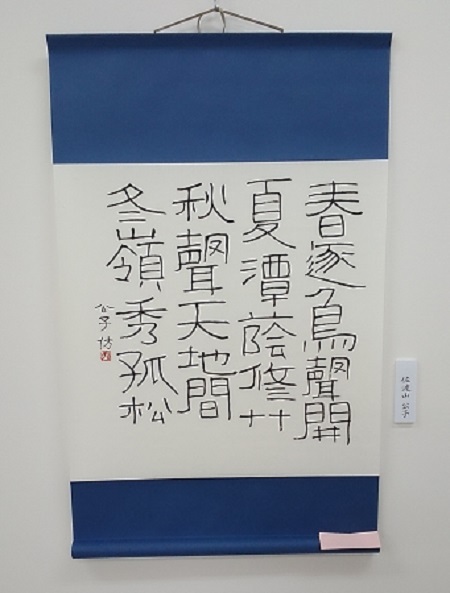 春逐鳥聲開
夏潭蔭修竹
秋聲天地間
冬嶺秀孤松
公子